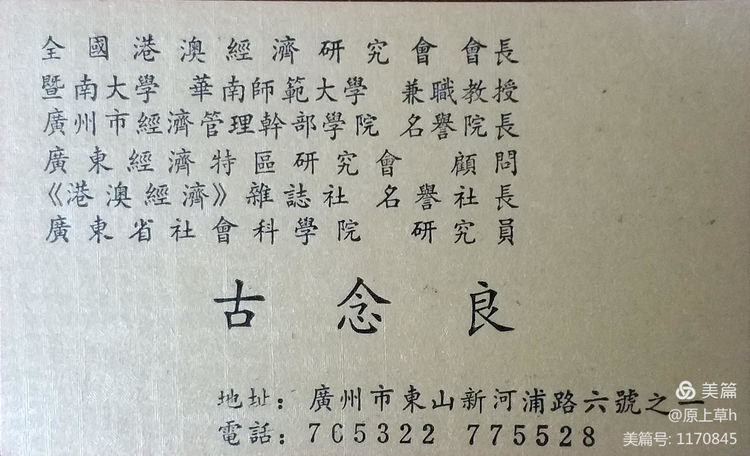 全國港澳經濟研究會 會長
暨南大學 華南師範大學 兼職教授
廣州市經濟管理幹部學院 名譽院長
廣東經濟特區研究會 顧問
《港澳經濟》雜誌社 名譽社長
廣東省社會科學院 研究員
古念良
地址：廣州市東山新河浦路六號之一
電話：765322 775528
美篇
@原上草h
美篇号: 1170845